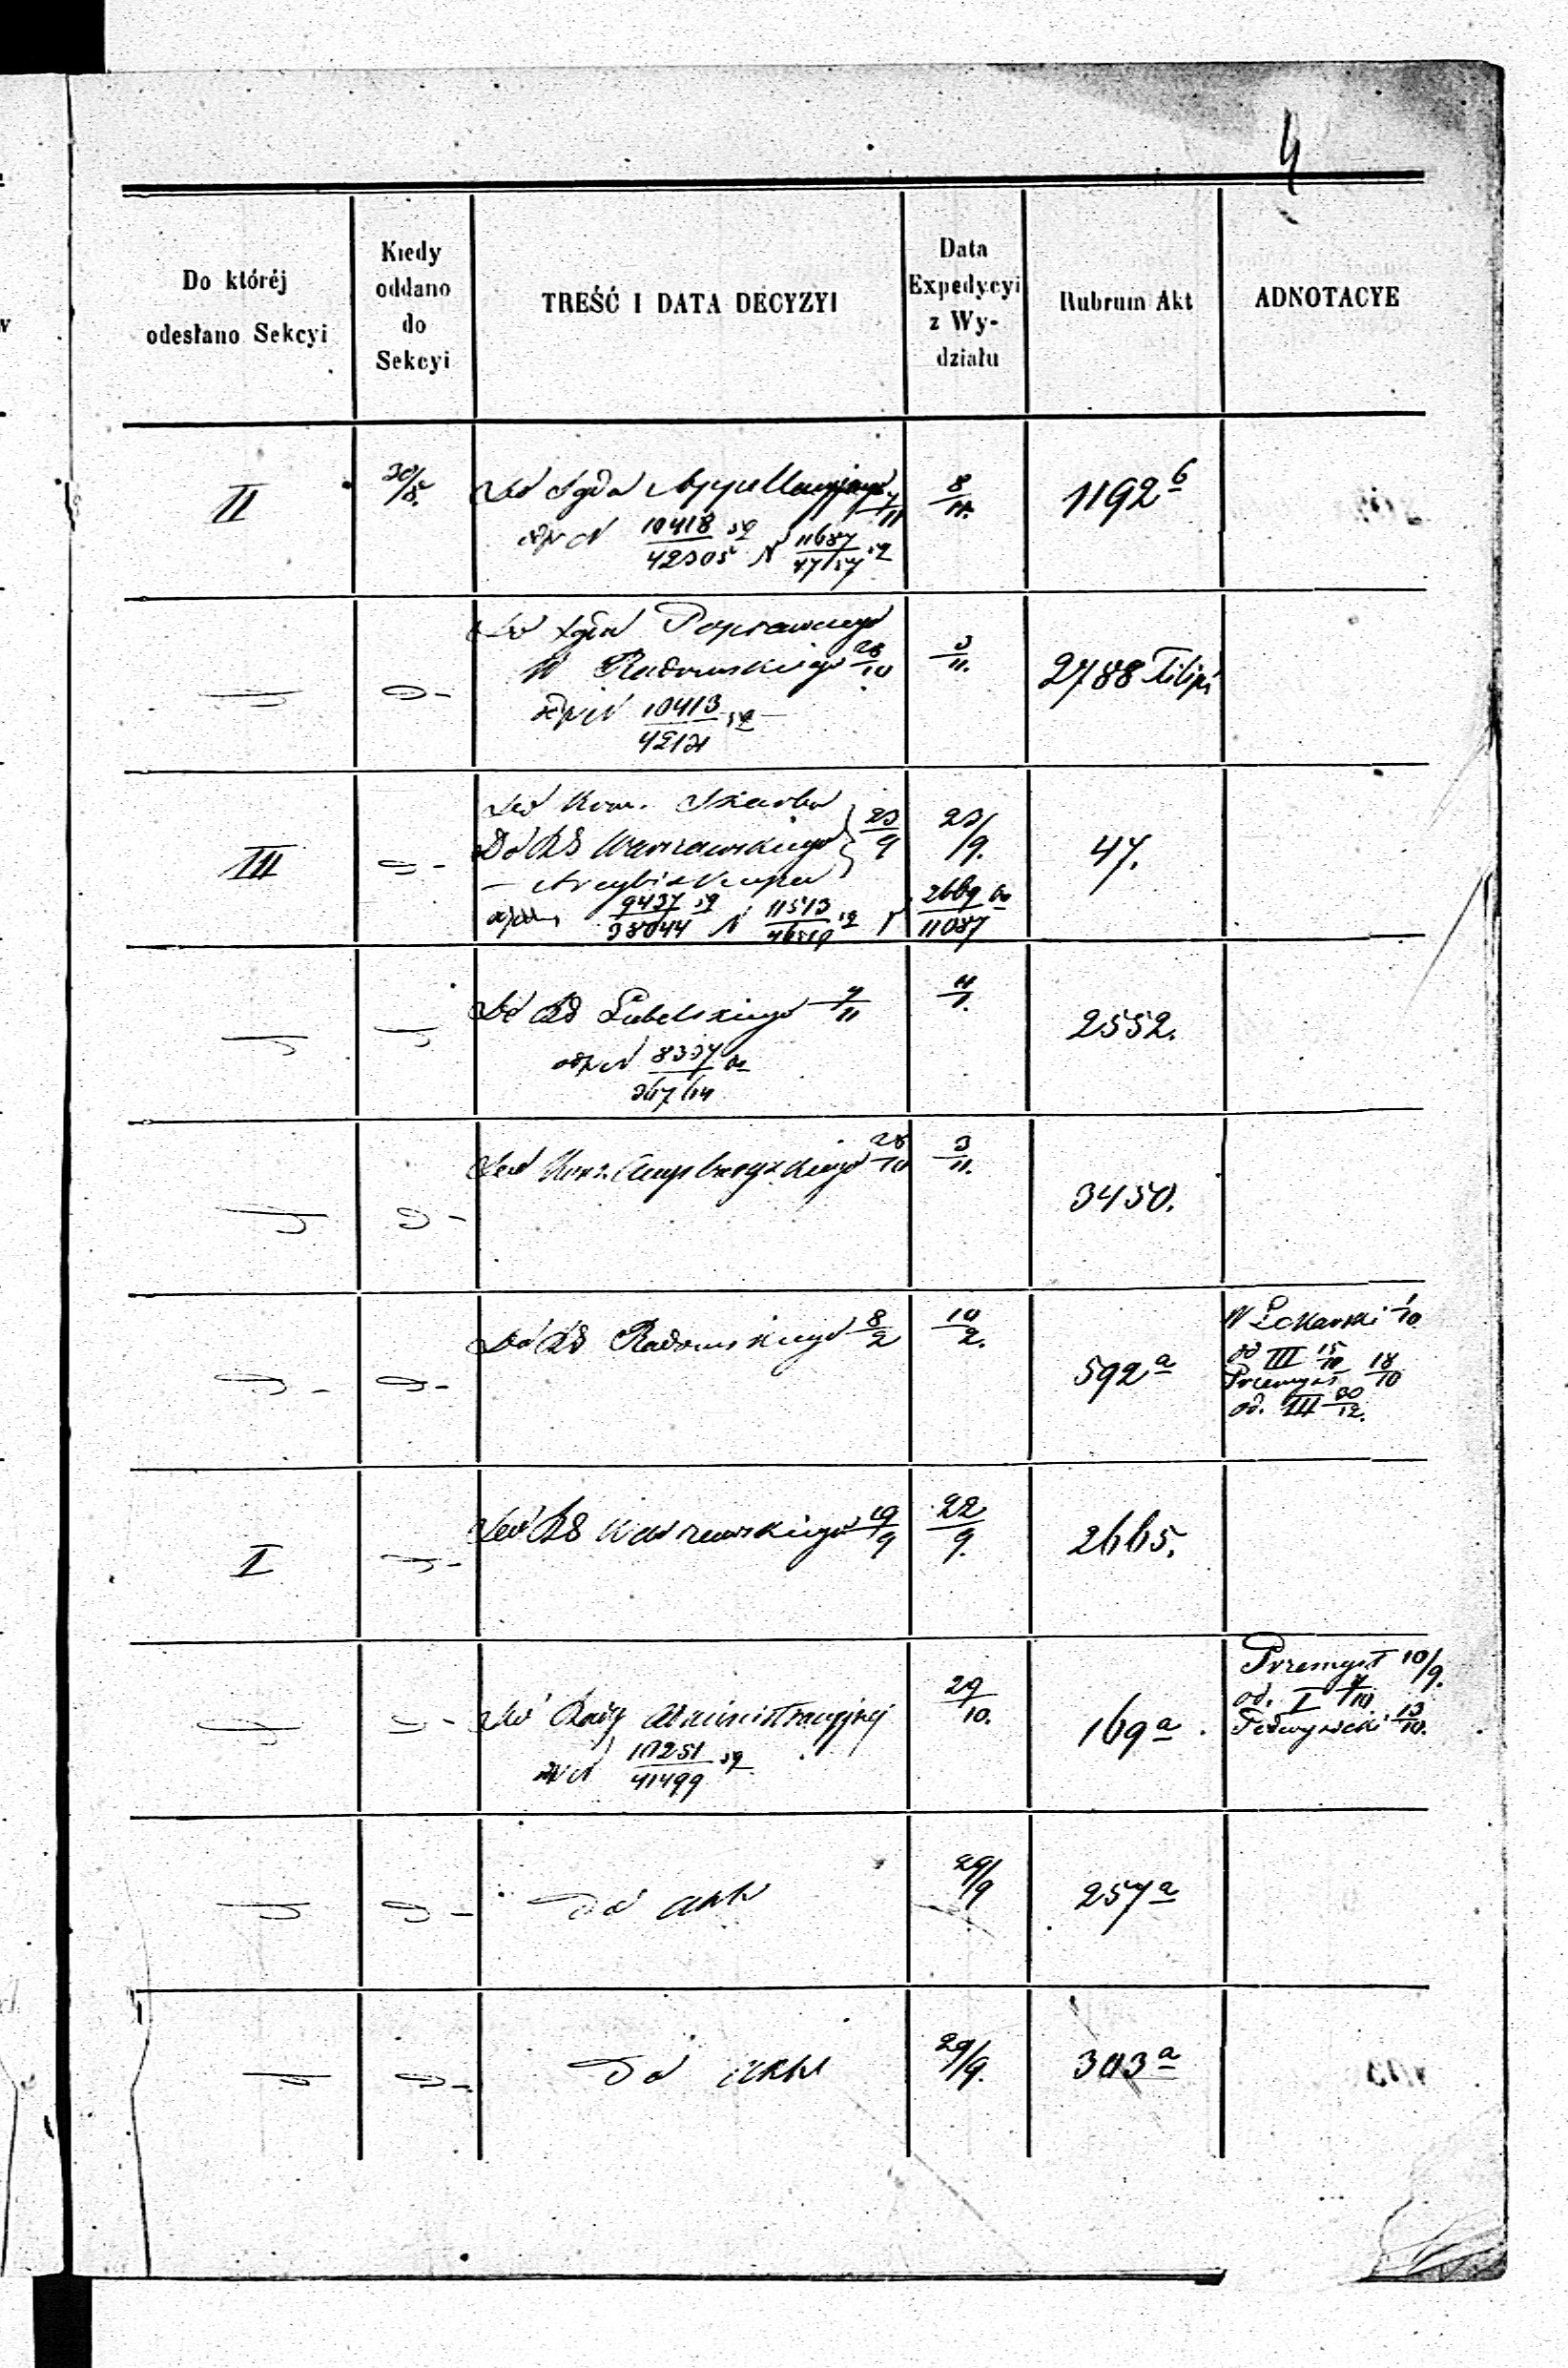 4
Do któréj
odesłano Sekcyi
Kiedy
oddano
do
Sekcyi
TREŚĆ I DATA DECYZYI
Data
Expedycyi
z Wy-
działu
Rubrum Akt
ADNOTACYE
II
30/8
Do Sądu Appellacyjnego 7/11
N 10418/42305 N 11687/47157
8/11.
1192 b
Do Sądu Poprawczego
W Radomskiego 28/10
odp N 10413/42121
3/11.
2788 Filipi
III
Do Kom. Skarbu
Do RG Warszawskiego 23/9
— Arcybiskupa
9437/38044 N 11513 N 2669/11087
23/9.
47.
Do RG Lubelskiego 7/11
odp N 8337/36764
2552.
Do 28/10
3/11.
3450.
Do RG Radomskiego 8/2
10/2.
592 a
W Lekarski 1/10
od III 15/10
Przemysł 18/10
od. III 30/12.
I
Do RG Warszawskiego 19/9
22/9.
2665.
Do Rady Administracyjnej
N 10251/41499
29/10.
169 a
Przemysł 10/9.
od. I 7/10
13/10.
Do akt
29/9
257 a
Do akt
29/9.
303 a